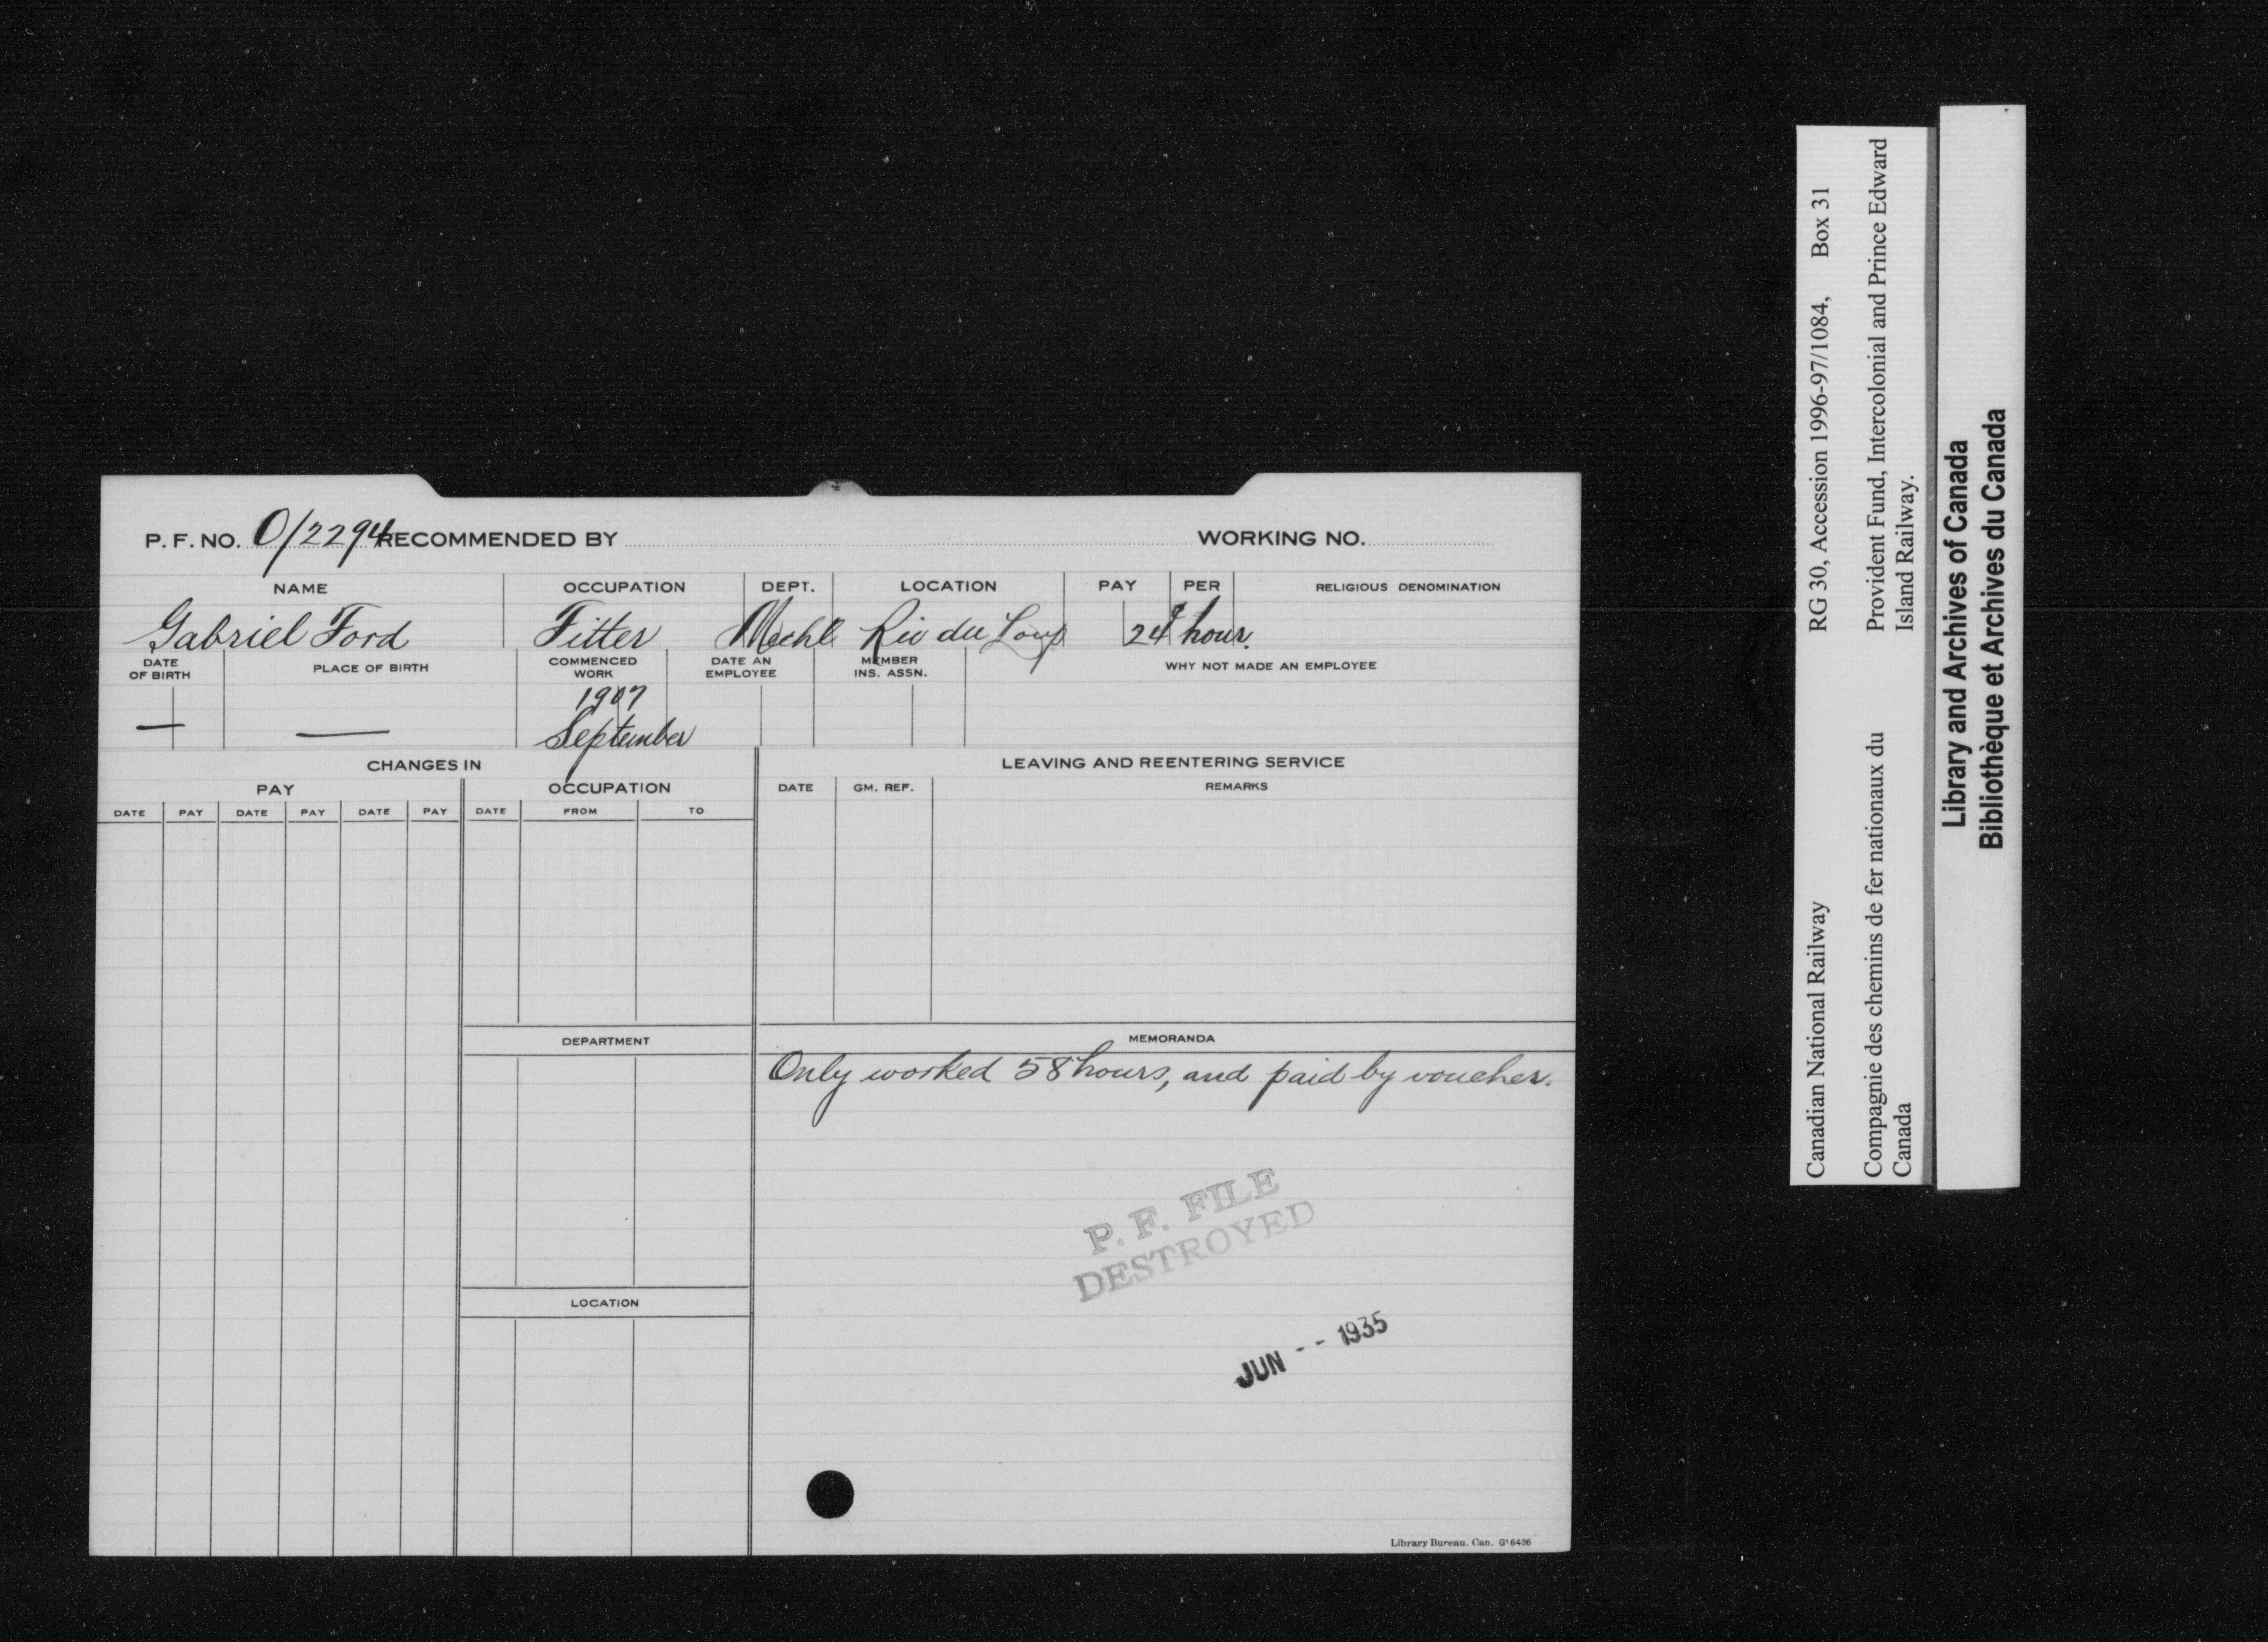 P. F. NO. O/2294 RECOMMENDED BY WORKING NO.
NAME OCCUPATION DEPT. LOCATION PAY PER RELIGIOUS DENOMINATION
Gabriel Ford Fitter Mechl Riv du Loup 24¢ hour.
DATE OF BIRTH PLACE OF BIRTH COMMENCED WORK DATE AN EMPLOYEE MEMBER INS. ASSN. WHY NOT MADE AN EMPLOYEE
1907
— — September
CHANGES IN LEAVING AND REENTERING SERVICE
PAY OCCUPATION DATE GM. REF. REMARKS
DATE PAY DATE PAY DATE PAY DATE FROM TO
DEPARTMENT MEMORANDA
Only worked 58 hours, and paid by voucher.
P. F. FILE
DESTROYED
LOCATION
JUN -- 1935
Library Bureau. Can. G¹6436
Canadian National Railway RG 30, Accession 1996-97/1084, Box 31
Compagnie des chemins de fer nationaux du Provident Fund, Intercolonial and Prince Edward
Canada Island Railway.
Library and Archives of Canada
Bibliothèque et Archives du Canada